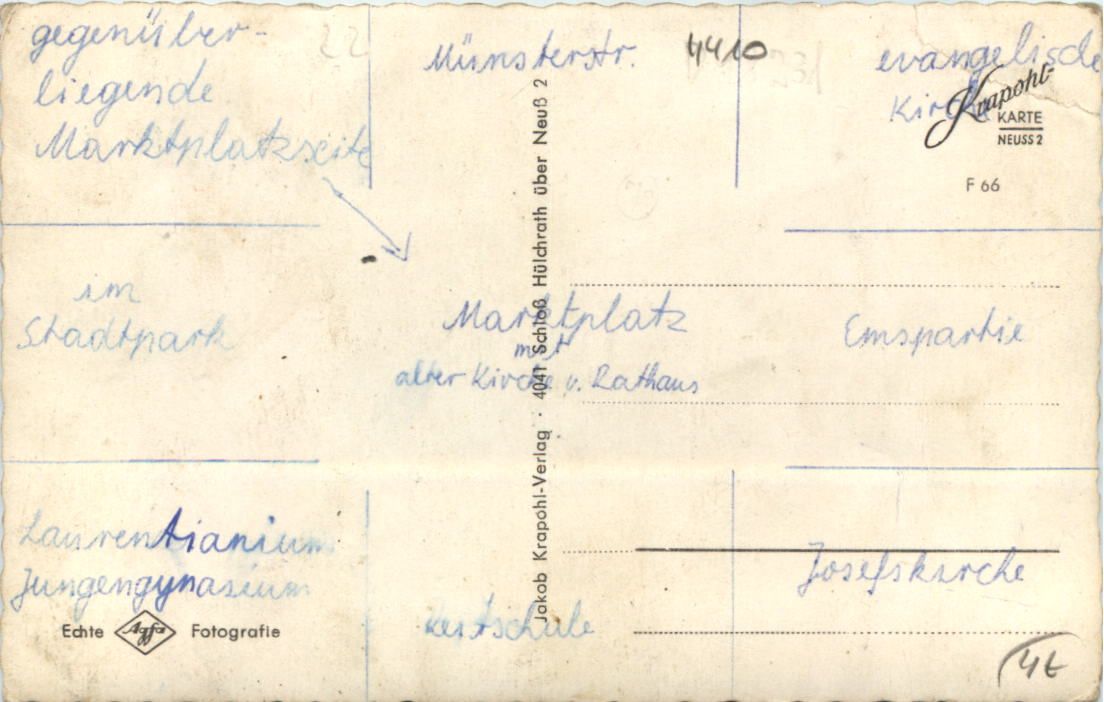 gegenüber-
liegende
Marktplatzseite
22
Münsterstr.
4410
evangelische
Kirche
Krapohl-
KARTE
NEUSS 2
F 66
im
Stadtpark
Marktplatz
mit
alter Kirche u. Rathaus
Emspartie
Laurentianium
Jungengynasium
Josefskirche
Echte Agfa Fotografie
Jakob Krapohl-Verlag · 4041 Schloß Hülchrath über Neuß 2